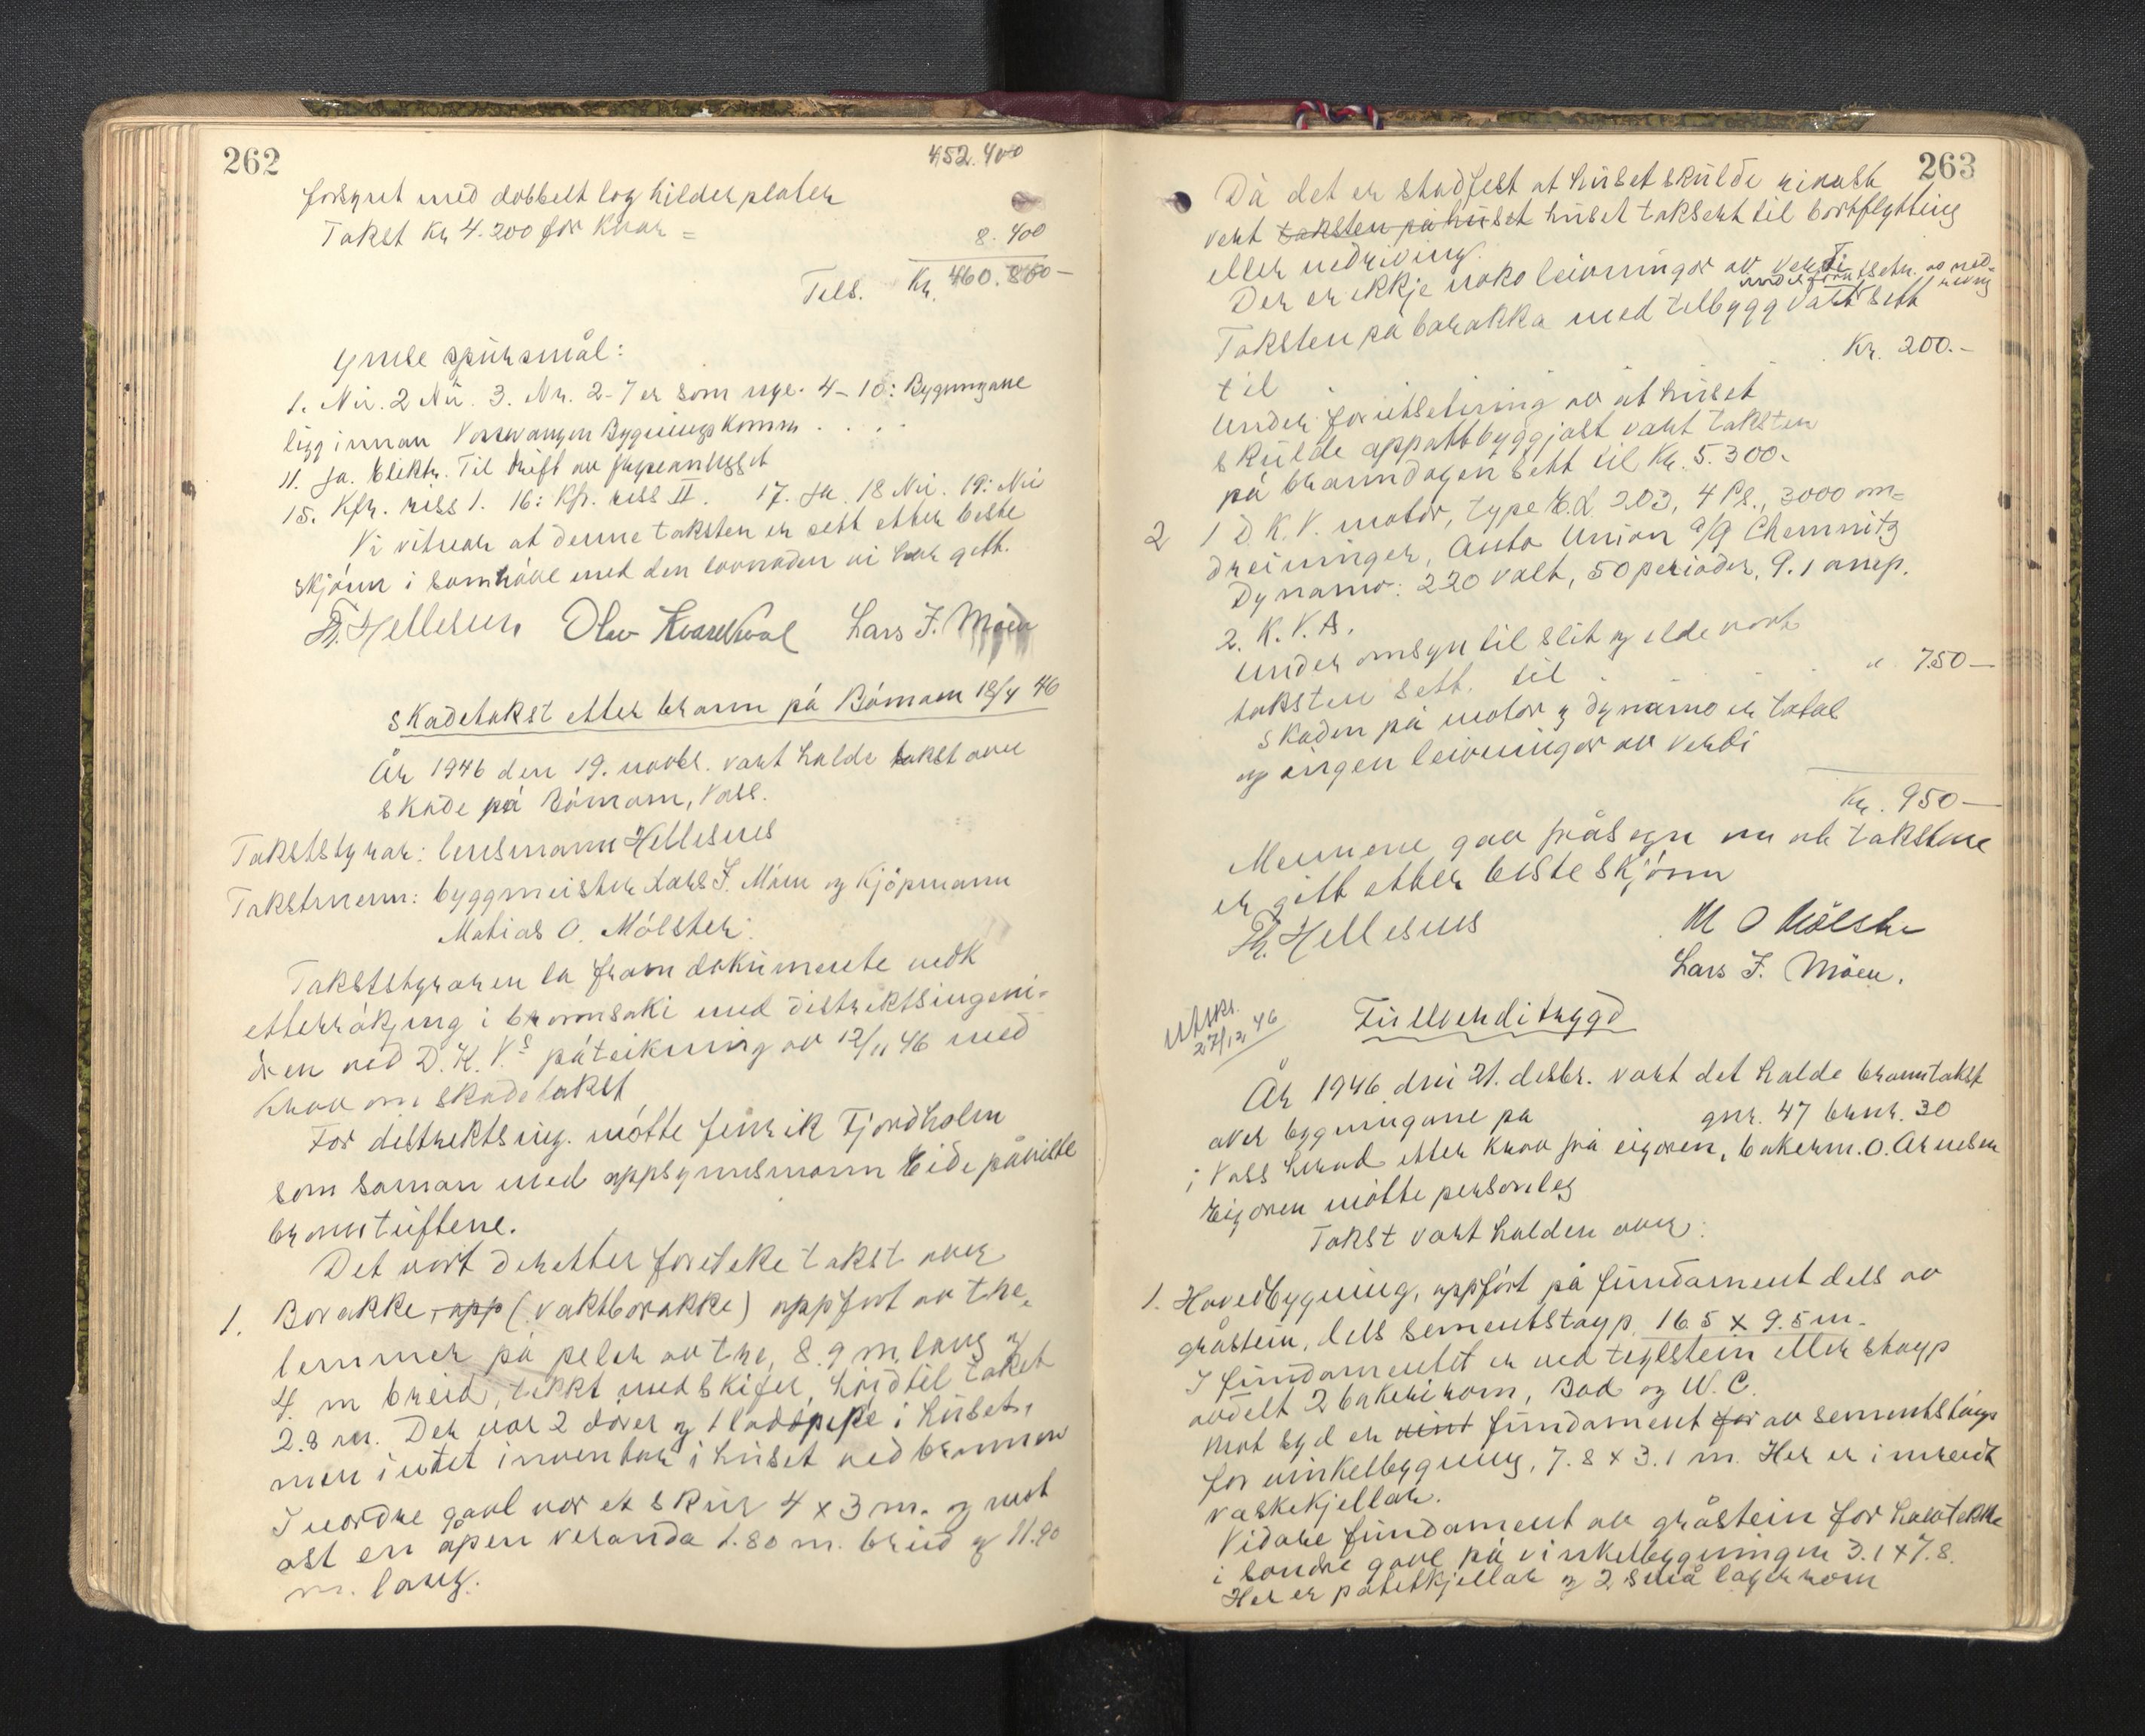 262
452.400
forsynt med dobbelt log hilderplater
Takst kr 4.200 for kvar =
8.400
Tils. Kr. 460.800—
Ymse spursmål:
1. Nei. 2 Nei. 3. Nr. 2-7 er som nye. 4-10: Bygningane
ligg innan Vossevangen Bygningskomm . . . .
11. Ja. Elektr. Til drift av
15. Kfr. riss 1. 16: Kfr. riss II. 17. Ja. 18 Nei. 19: Nei
Vi vitnar at denne taksten er sett etter beste
skjønn i samhøve med den lovnaden vi har gett.
Th. Hellesnes Olav Lars J. Møen
Skadetakst etter brann på Bømoen 18/4 46
År 1946 den 19. novbr. vart halde takst over
skade på Bømoen, Voss.
Takststyrar: lensmann Hellesnes
Takstmenn: byggmeister Lars J. Møen og Kjøpmann
Matias O. Mølster.
Takststyraren la fram dokumente vedk
etterrøkjing i brannsaki med distriktsingeni-
øren ved D.K.Vs påteikning av 12/11 46 med
krav om skadetakst
For distriktsing. møtte fenrik Fjordholm
som saman med oppsynsmann Eide påviste
branntuftene.
Det vart deretter foreteke takst over
1. Barakke, opp (vaktbarakke) oppført av tre,
lemmer på peler av tre, 8.9 m. lang og
4. m breid, tekt med skifer, høid til taket
2.8 m. Der var 2 dører og 1 laddpipe i huset,
men intet inventar i huset ved brannen
I nordre gavl var et skur 4 x 3 m. og mot
ost en åpen veranda 1.80 m. breid og 11.90
m. lang.
263
Då det er stadfest at huset skulde rivast
vert taksten på huset huset taksert til bortflytting
eller nedriving.
Der er ikkje noko leivningar av verdi
under forutsetn. av ned-
riving
Taksten på barakka med tilbygg vart sett
til Kr. 200.-
Under foruitsetning av at huset
skulde oppattbyggjast vart taksten
på branndagen sett til Kr. 5.300.
2 1 D.K.V. motor, type E.L 203, 4 Ps., 3000 om-
dreininger, Auto Union a/g Chemnitz
Dynamo: 220 volt, 50 perioder, 9.1 amp.
2. K.V.A.
Under omsyn til slit og elde vart
taksten sett. til . - - . " 750—
Skaden på motor og dynamo er total
og ingen leivningar av verdi
Kr. 950—
Mennene gav fråsegn um at takstene
er gitt etter beste skjønn
Th. Hellesnes M O Mölster
Lars J. Möen.
Utskr.
27/12 46
Fullverditrygd
År 1946 den 21. desbr. vart det halde branntakst
over bygningane på gnr. 47 brnr. 30
i Voss herad etter krav frå eigaren, bakerm. O. Arnesen
Eigaren møtte personleg
Takst vart halden over:
1. Hovedbygning, oppført på fundament dels av
gråstein, dels sementstøyp. 16.5 x 9.5 m.
I fundamentet er ved teglstein eller støyp
avdelt 2 bakerirom, Bad og W.C.
Mot syd er vint fundament for av sementstøyp
for vinkelbygning, 7.8 x 3.1 m. Her er innreidt
vaskekjellar.
Vidare fundament av gråstein for
i søndre gavl på vinkelbygningen 3.1 x 7.8.
Her er potetkjellar og 2 små lagerrom